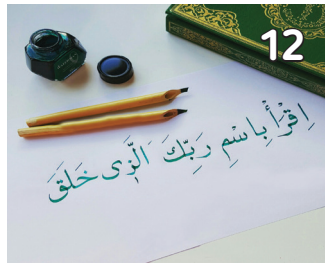 12
اِقْرَأْ بِاسْمِ رَبِّكَ الَّذِى خَلَقَ